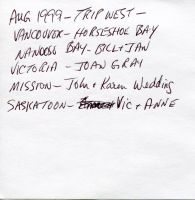 AUG 1999 - TRIP WEST -
VANCOUVER - HORSESHOE BAY
NANOOSE BAY - BILL + JAN
VICTORIA - JOAN GRAY
MISSION - John + Karen Wedding
SASKATOON - Vic + ANNE